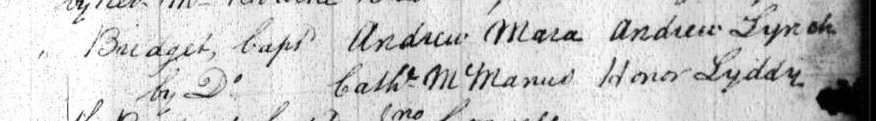 by Rev. Mr
" Bridget, Capt Andrew Mara Andrew Lynch
by Do Cathe McManus Honor Lyddy